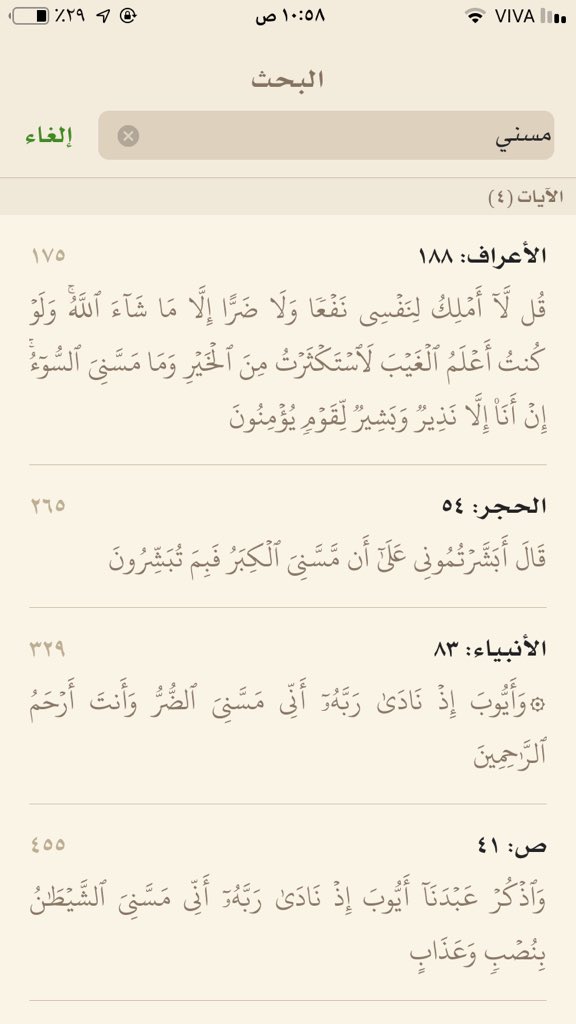 VIVA ١٠:٥٨ ص ٪٢٩
البحث
مسني إلغاء
الآيات (٤)
الأعراف: ١٨٨ ١٧٥
قُل لَّآ أَمْلِكُ لِنَفْسِى نَفْعًا وَلَا ضَرًّا إِلَّا مَا شَآءَ ٱللَّهُ ۚ وَلَوْ
كُنتُ أَعْلَمُ ٱلْغَيْبَ لَٱسْتَكْثَرْتُ مِنَ ٱلْخَيْرِ وَمَا مَسَّنِىَ ٱلسُّوٓءُ ۚ
إِنْ أَنَا۠ إِلَّا نَذِيرٌ وَبَشِيرٌ لِّقَوْمٍ يُؤْمِنُونَ
الحجر: ٥٤ ٢٦٥
قَالَ أَبَشَّرْتُمُونِى عَلَىٰٓ أَن مَّسَّنِىَ ٱلْكِبَرُ فَبِمَ تُبَشِّرُونَ
الأنبياء: ٨٣ ٣٢٩
۞وَأَيُّوبَ إِذْ نَادَىٰ رَبَّهُۥٓ أَنِّى مَسَّنِىَ ٱلضُّرُّ وَأَنتَ أَرْحَمُ
ٱلرَّٰحِمِينَ
ص: ٤١ ٤٥٥
وَٱذْكُرْ عَبْدَنَآ أَيُّوبَ إِذْ نَادَىٰ رَبَّهُۥٓ أَنِّى مَسَّنِىَ ٱلشَّيْطَٰنُ
بِنُصْبٍ وَعَذَابٍ